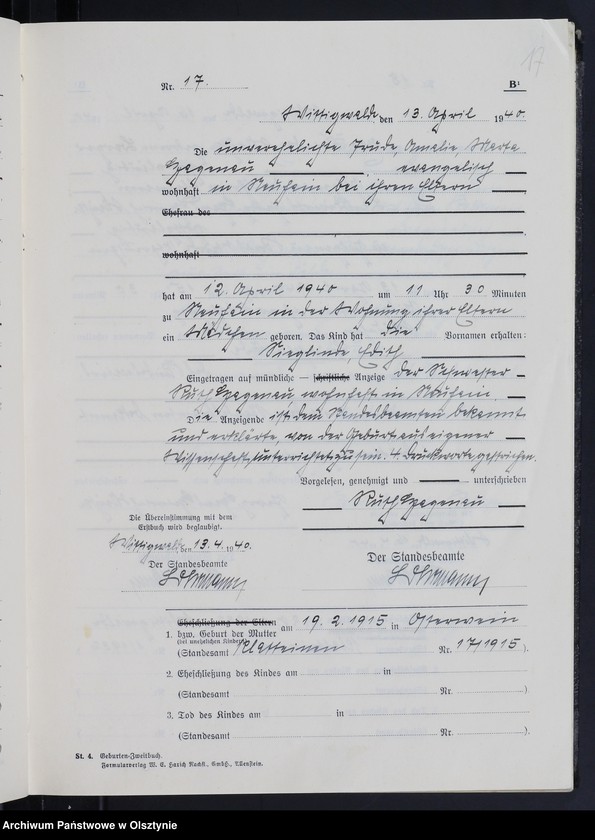 17
Nr. 17. B¹
Wittigwalde, den 13. April 1940.
Die unverehelichte Trude, Amalie, Marta
evangelisch
wohnhaft in Neuhain bei ihren Eltern
Ehefrau des
wohnhaft
hat am 12. April 1940 um 11 Uhr 30 Minuten
zu Neuhain in der Wohnung ihrer Eltern
ein Mädchen geboren. Das Kind hat die Vornamen erhalten:
Sieglinde, Edith
Eingetragen auf mündliche – schriftliche Anzeige der Schwester
Ruth wohnhaft in Neuhain.
Die Anzeigende ist dem Standesbeamten bekannt
und erklärte, von der Geburt aus eigener
Wissenschaft unterrichtet zu sein. 4 Druckworte gestrichen.
Vorgelesen, genehmigt und unterschrieben
Ruth
Die Übereinstimmung mit dem
Erstbuch wird beglaubigt.
Wittigwalde, den 13.4.1940.
Der Standesbeamte
Der Standesbeamte
1. Eheschließung der Eltern am 19. 2. 1915 in Osterwein
bzw. Geburt der Mutter
(bei unehelichen Kindern)
(Standesamt Klatteinen Nr. 17/1915).
2. Eheschließung des Kindes am in
(Standesamt Nr. )
3. Tod des Kindes am in
(Standesamt Nr. )
St. 4. Geburten-Zweitbuch.
Formularverlag W. E. Harich Nachf., GmbH., Allenstein.
Archiwum Państwowe w Olsztynie